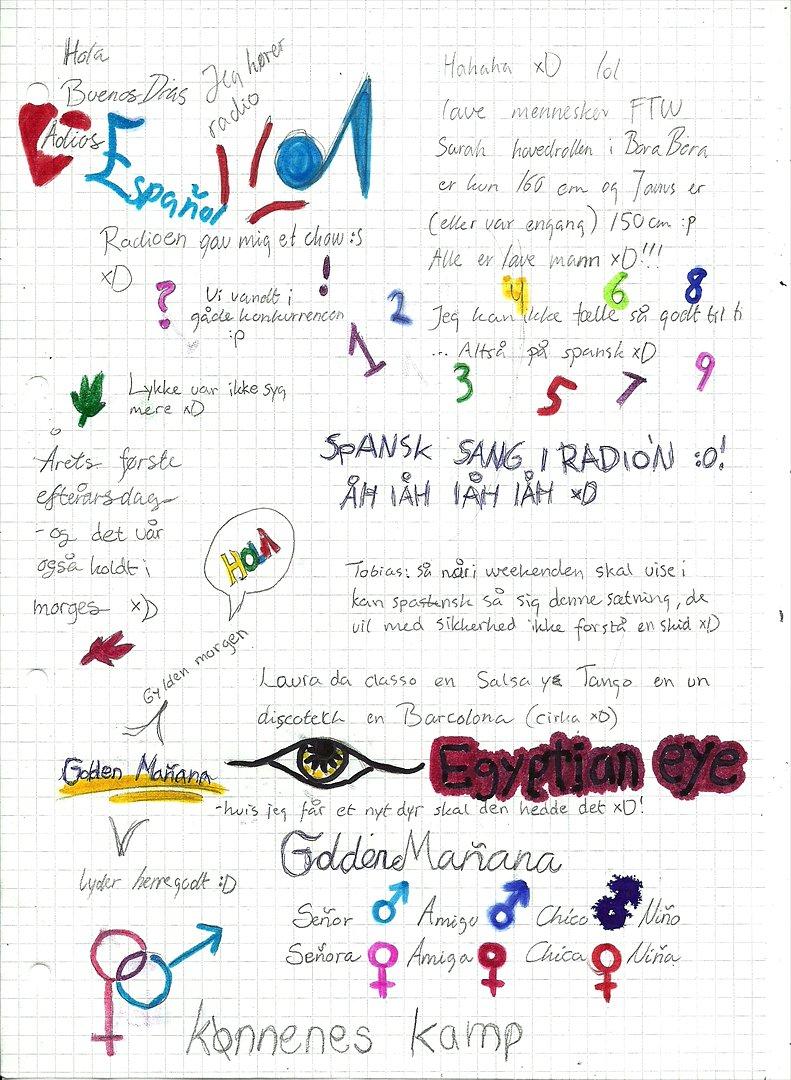 Hola
Buenos Dias
Adios
Español
Jeg hører
radio
Radioen gav mig et chow :s
xD
?
!
Vi vandt i
gåde konkurrencen
:p
Hahaha xD lol
lave mennesker FTW
Sarah hovedrollen i Bora Bora
er kun 160 cm og Janus er
(eller var engang) 150 cm :p
Alle er lave mann xD!!!
1 2 3 4 5 6 7 8 9
Jeg kan ikke tælle så godt til ti
... Altså på spansk xD
Lykke var ikke syg
mere xD
Årets første
efterårsdag
- og det var
også koldt i
morges xD
SPANSK SANG I RADION :O!
ÅH IÅH IÅH IÅH xD
HOLA
Tobias: så når i weekenden skal vise i
kan spastensk så sig denne sætning, de
vil med sikkerhed ikke forstå en skid xD
Gylden morgen
Laura da classo en Salsa ye Tango en un
discotech en Barcolona (cirka xD)
Golden Mañana
Egyptian eye
- hvis jeg får et nyt dyr skal den hedde det xD!
Golden Mañana
lyder herregodt :D
Señor ♂ Amigo ♂ Chico ♂ Niño
Señora ♀ Amiga ♀ Chica ♀ Niña
kønnenes kamp